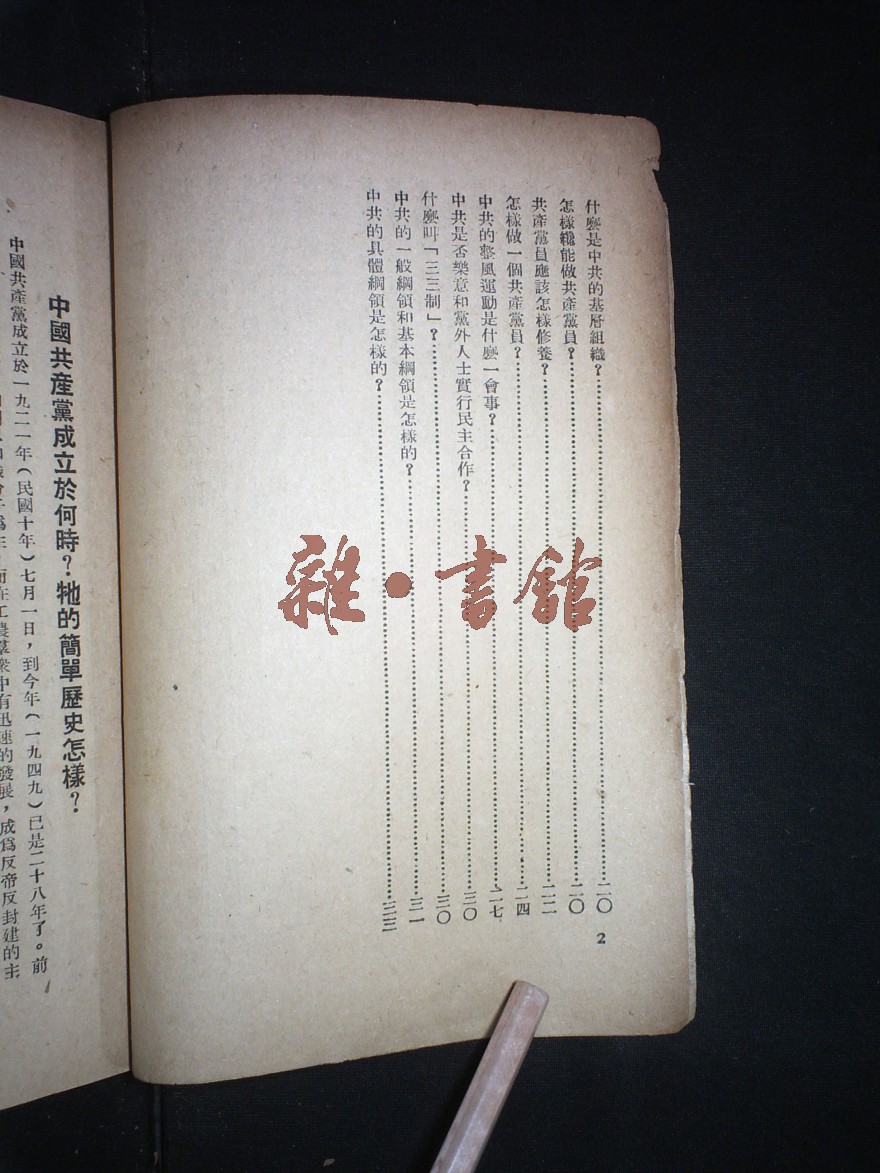 什麼是中共的基層組織？……二〇
怎樣纔能做共產黨員？……二〇
共產黨員應該怎樣修養？……二二
怎樣做一個共產黨員？……二四
中共的整風運動是什麼一會事？……二七
中共是否樂意和黨外人士實行民主合作？……三〇
什麼叫「三三制」？……三〇
中共的一般綱領和基本綱領是怎樣的？……三一
中共的具體綱領是怎樣的？……三三
2
雜·書館
中國共產黨成立於何時？牠的簡單歷史怎樣？
中國共產黨成立於一九二一年（民國十年）七月一日，到今年（一九四九）已是二十八年了。前
而在工農羣衆中有迅速的發展，成爲反帝反封建的主